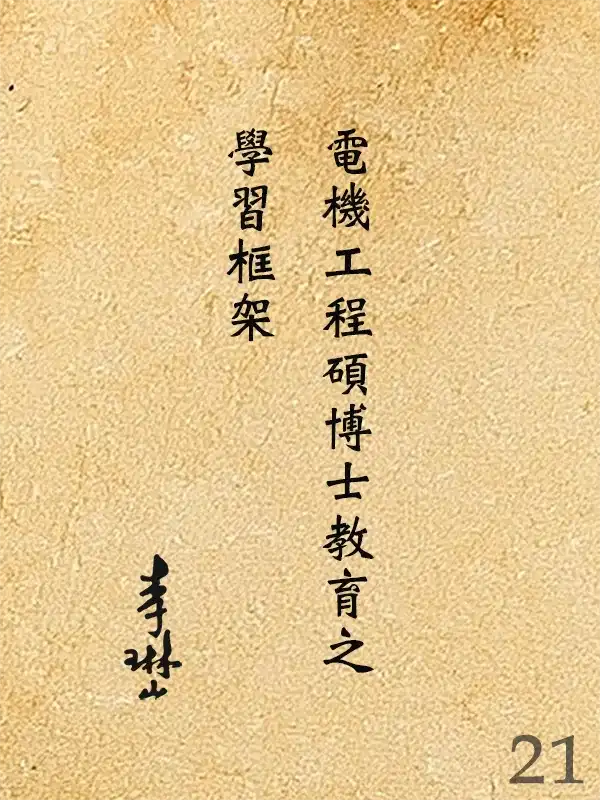 電機工程碩博士教育之
學習框架
李琳山
21